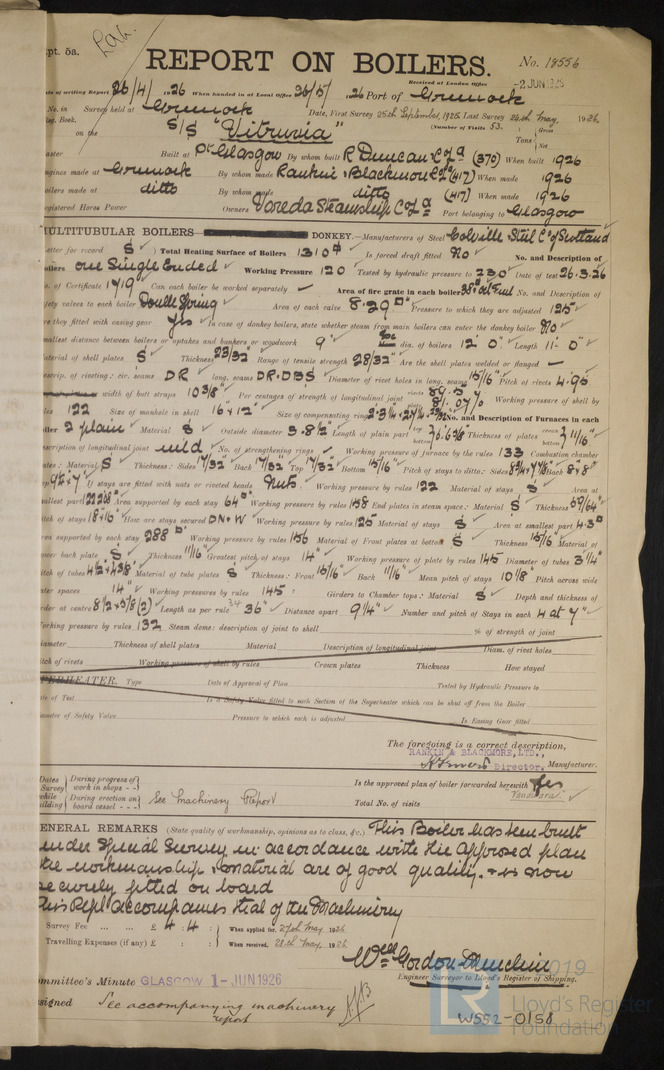 pt. 5a.
REPORT ON BOILERS.
No. 18556
Received at London Office
-2 JUN 1926
te of writing Report 26/4/ 1926 When handed in at Local Office 26/5/ 1926 Port of Greenock
No. in Survey held at Greenock Date, First Survey 25th September, 1925 Last Survey 26th May, 1926
eg. Book.
(Number of Visits 53.)
on the S/S "Vitruvia"
Tons { Gross
Net
aster Built at Pt Glasgow By whom built R Duncan & Co Ld (370) When built 1926
ngines made at Greenock By whom made Rankin & Blackmore Ld (417) When made 1926
oilers made at ditto By whom made ditto (417) When made 1926
egistered Horse Power Owners Voreda Steamship Co Ld Port belonging to Glasgow
MULTITUBULAR BOILERS DONKEY.—Manufacturers of Steel Colville Steel Co of Scotland
etter for record S Total Heating Surface of Boilers 1310 Is forced draft fitted No No. and Description of
oilers one Single Ended Working Pressure 120 Tested by hydraulic pressure to 230 Date of test 26.3.26
o. of Certificate 1719 Can each boiler be worked separately Area of fire grate in each boiler 38 No. and Description of
afety valves to each boiler Double Spring Area of each valve 8.29 Pressure to which they are adjusted 125
re they fitted with easing gear Yes In case of donkey boilers, state whether steam from main boilers can enter the donkey boiler No
mallest distance between boilers or uptakes and bunkers or woodwork 9" dia. of boilers 12' 0" Length 11'- 0"
aterial of shell plates S Thickness 23/32 Range of tensile strength 28/32 Are the shell plates welded or flanged —
escrip. of riveting: cir. seams DR long. seams DR.DBS Diameter of rivet holes in long. seams 15/16 Pitch of rivets 4.95
width of butt straps 10 3/8" Per centages of strength of longitudinal joint rivets 89.5 Working pressure of shell by
81.07%
les 122 Size of manhole in shell 16"x12" Size of compensating ring No. and Description of Furnaces in each
iler 2 plain Material S Outside diameter 3.8 1/2" Length of plain part Thickness of plates 11/16"
escription of longitudinal joint weld No. of strengthening rings — Working pressure of furnace by the rules 133 Combustion chamber
ates: Material S Thickness: Sides 17/32 Back 17/32 Top 17/32 Bottom 15/16 Pitch of stays to ditto: Sides Back 8x8"
If stays are fitted with nuts or riveted heads Nuts Working pressure by rules 122 Material of stays S Area at
mallest part Area supported by each stay 64 Working pressure by rules 158 End plates in steam space: Material S Thickness 59/64"
itch of stays 18x16" How are stays secured DN+W Working pressure by rules 125 Material of stays S Area at smallest part 4.3
rea supported by each stay 288 Working pressure by rules 156 Material of Front plates at bottom S Thickness 15/16 Material of
ower back plate S Thickness 11/16" Greatest pitch of stays 14" Working pressure of plate by rules 145 Diameter of tubes 3 1/4"
itch of tubes 4 1/2 x 4 3/8 Material of tube plates S Thickness: Front 15/16" Back 11/16" Mean pitch of stays 10 1/8" Pitch across wide
ater spaces 14" Working pressures by rules 145 Girders to Chamber tops: Material S Depth and thickness of
irder at centre 8 1/2 x 5/8 (2) Length as per rule 36" Distance apart 9 1/4" Number and pitch of Stays in each 4 at 7"
orking pressure by rules 132 Steam dome: description of joint to shell % of strength of joint
iameter Thickness of shell plates Material Description of longitudinal joint Diam. of rivet holes
itch of rivets Working pressure of shell by rules Crown plates Thickness How stayed
PERHEATER. Type Date of Approval of Plan Tested by Hydraulic Pressure to
te of Test Is a Safety Valve fitted to each Section of the Superheater which can be shut off from the Boiler
iameter of Safety Valve Pressure to which each is adjusted Is Easing Gear fitted
The foregoing is a correct description,
RANKIN & BLACKMORE, LTD.,
Director. Manufacturer.
Dates Survey while uilding
During progress of work in shops - -
During erection on board vessel - - -
See Machinery Report
Is the approved plan of boiler forwarded herewith Yes
Total No. of visits
ENERAL REMARKS (State quality of workmanship, opinions as to class, &c.) This Boiler has been built
under Special Survey in accordance with the approved plan
the workmanship & material are of good quality. & is now
securely fitted on board
This Rept accompanies that of the Machinery
Survey Fee ... ... £ 4 : 4 : When applied for, 27th May 1926
Travelling Expenses (if any) £ : : When received, 28th May, 1926
Wm Gordon
Engineer Surveyor to Lloyd's Register of Shipping.
ommittee's Minute GLASGOW 1 - JUN 1926
signed See accompanying machinery
report
© 2019
Lloyd's Register
Foundation
W552-0158